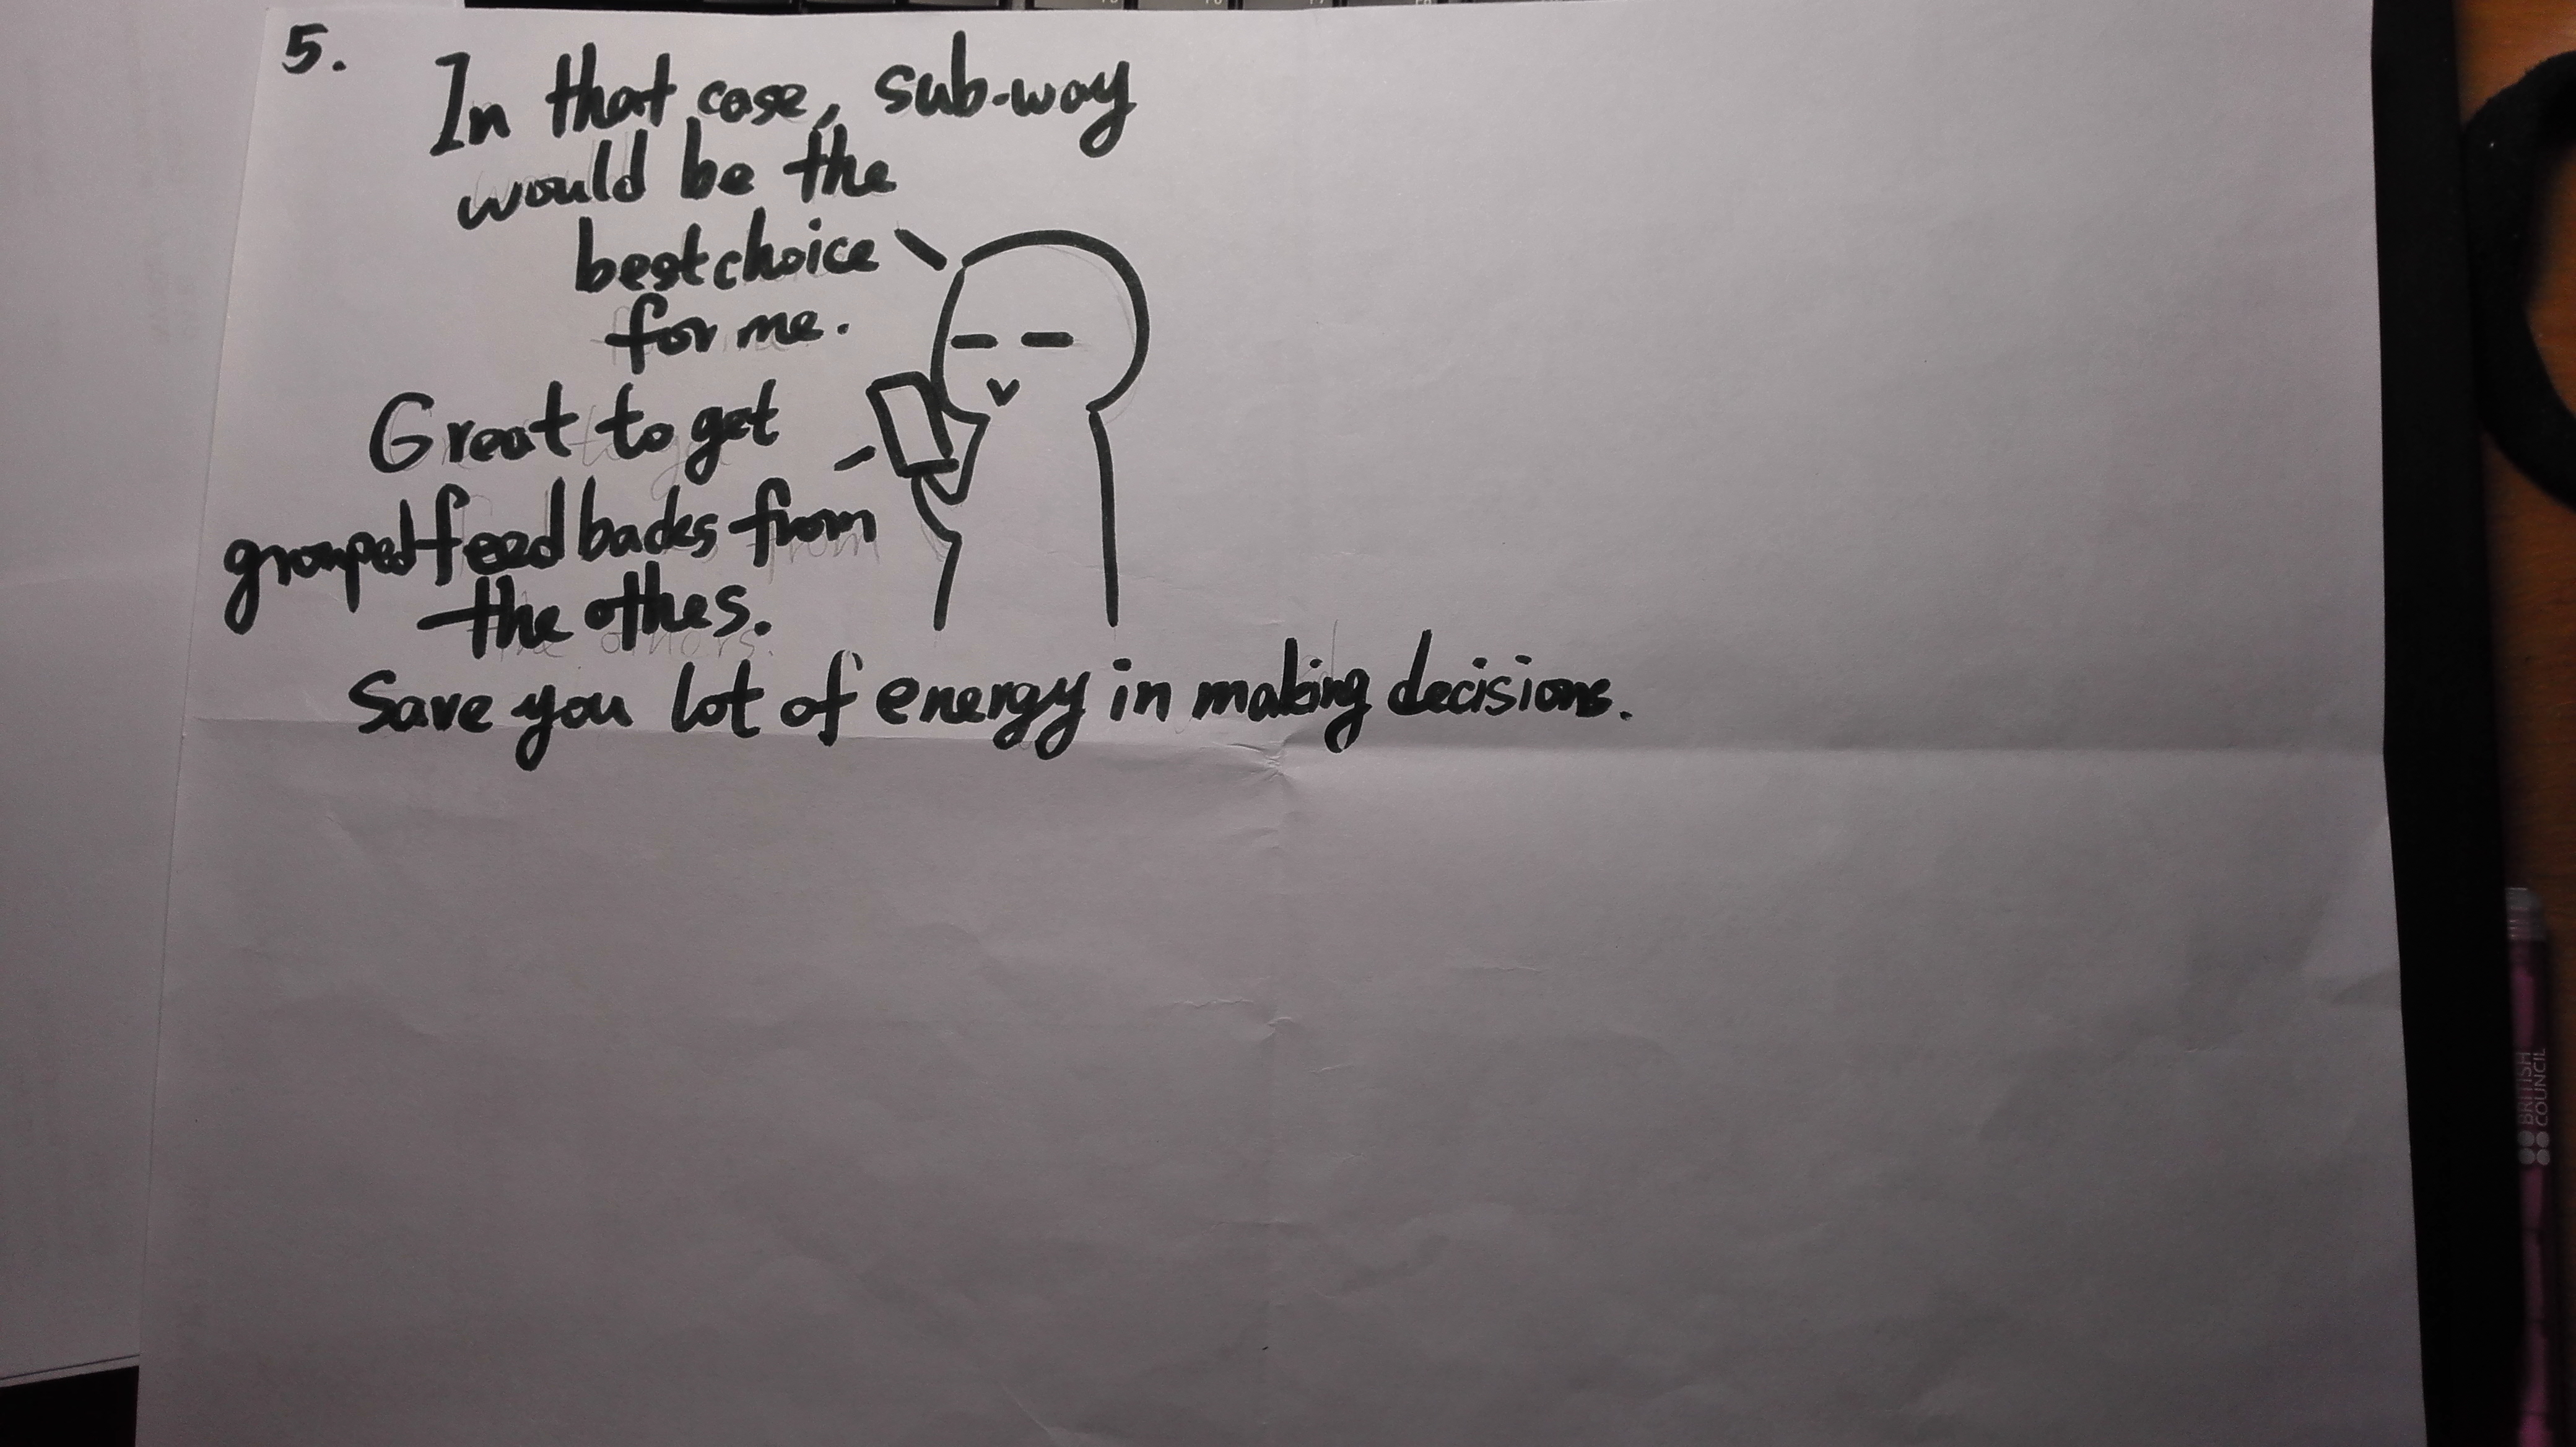 5.
In that case, sub-way
would be the
best choice
for me.
Great to get
grouped feed backs from
the othes.
Save you lot of energy in making decisions.
BRITISH
COUNCIL